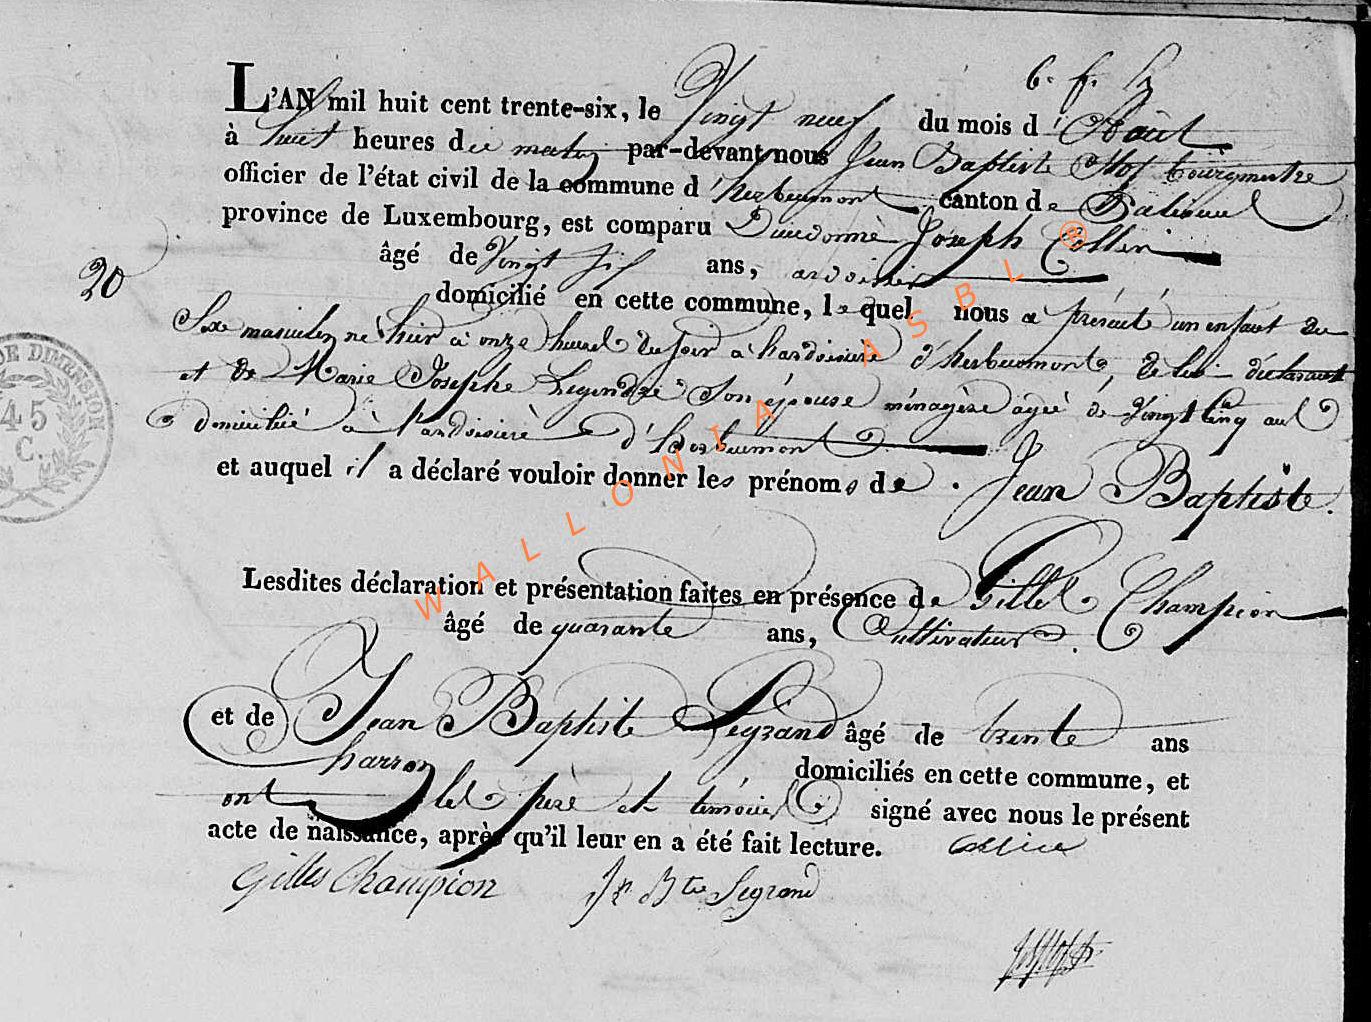 6. f. 
L'AN mil huit cent trente-six, le Vingt neuf du mois d'Août
à huit heures du matin par-devant nous Jean Baptiste bourgmestre
officier de l'état civil de la commune d'herbeumont canton de Paliseul
province de Luxembourg, est comparu Dieudonnè Joseph Collin
âgé de Vingt six ans, ardoisier
20
domicilié en cette commune, lequel nous a présenté un enfant du
Sexe masculin né hier à onze heures du soir à l'ardoisière d'herbeumont, de lui déclarant
et de Marie Josephe Legendre Son épouse ménagère agée de Vingt cinq ans
domiciliée à l'ardoisière d'herbeumont
et auquel il a déclaré vouloir donner les prénoms de . Jean Baptiste.
Lesdites déclaration et présentation faites en présence de Gilles Champion
âgé de quarante ans, Cultivateur.
et de Jean Baptiste Legrand âgé de trente ans
charron domiciliés en cette commune, et
ont les père et témoins signé avec nous le présent
acte de naissance, après qu'il leur en a été fait lecture. Collin
Gilles Champion Jn Bte Legrand
DE DIMENSION
45
C.
WALLONIA ASBL ®